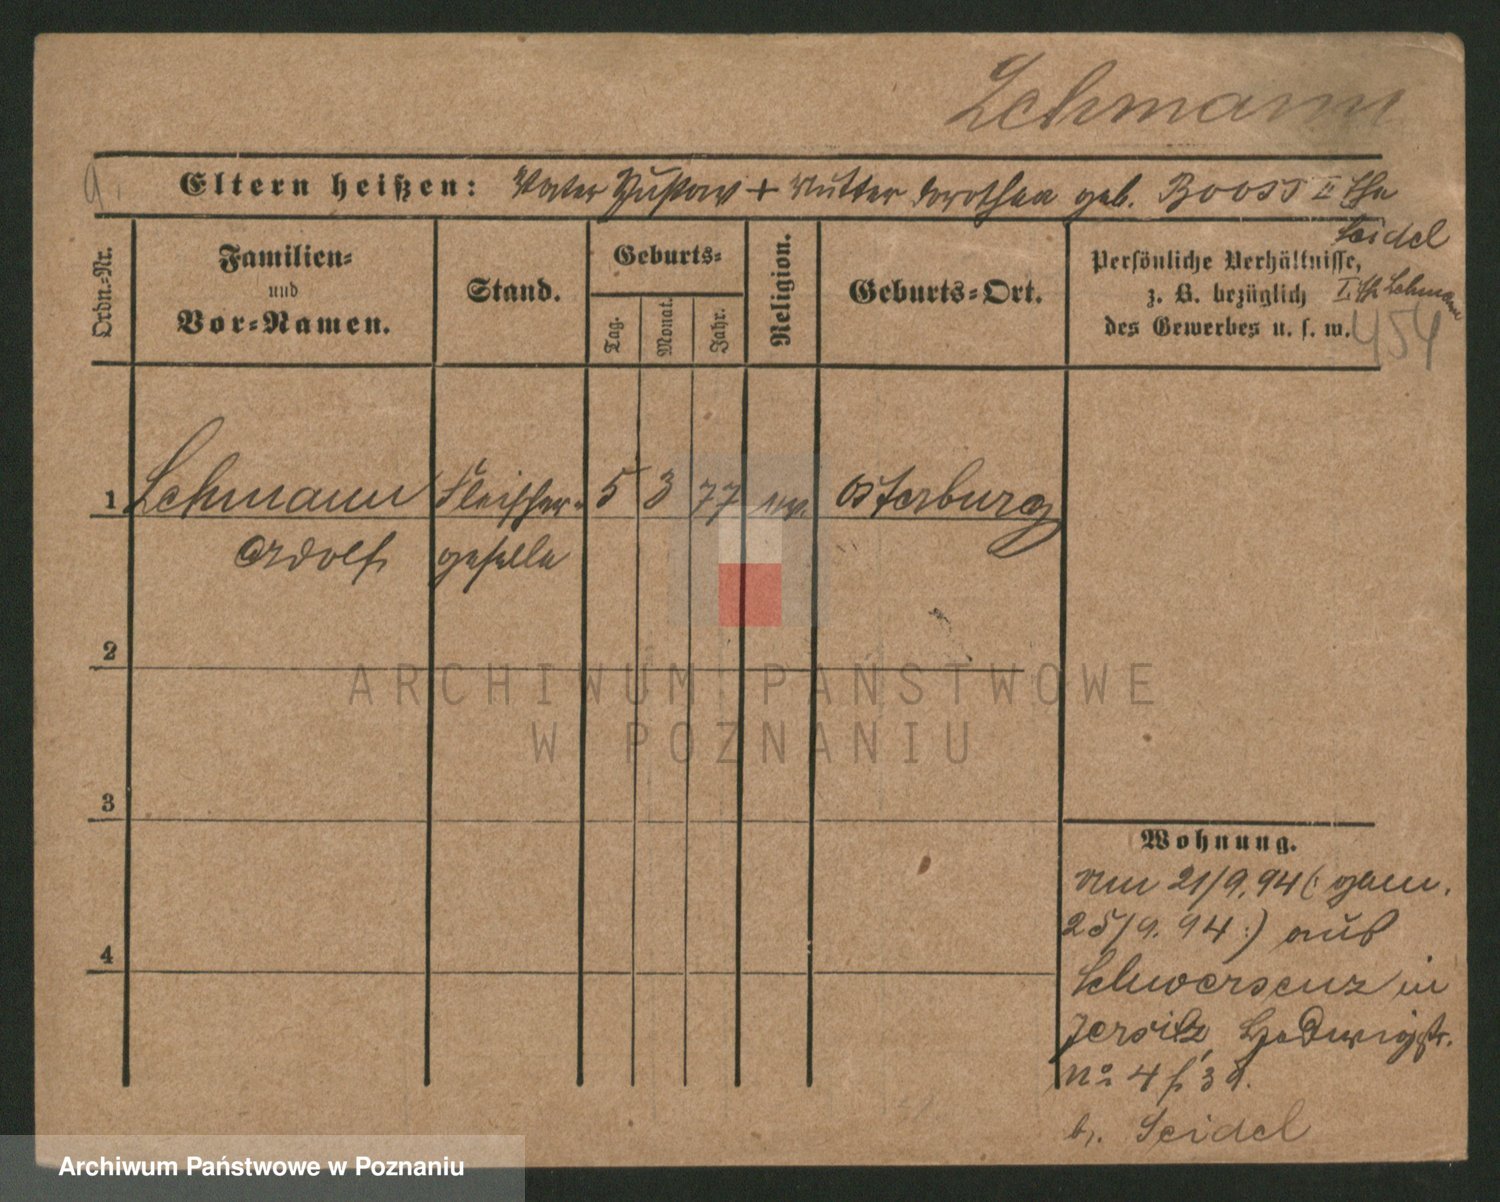 Lehmann
Eltern heißen: Vater Gustav + Mutter Dorothea geb. Booss II Ehe
Seidel
I. Eh. Lehmann
454
Ordn.-Nr.
Familien-
und
Vor-Namen.
Stand.
Geburts-
Tag.
Monat.
Jahr.
Religion.
Geburts-Ort.
Persönliche Verhältnisse,
z. B. bezüglich
des Gewerbes u. s. w.
1 Lehmann Fleischer- 5 3 77 ev. Osterburg
Adolf geselle
2
3
4
Wohnung.
am 21/9.94 (: gem.
25/9.94 :) aus
Schwersenz in
Jersitz, Hedwigstr.
No 4
b. Seidel
ARCHIWUM PAŃSTWOWE
W POZNANIU
Archiwum Państwowe w Poznaniu